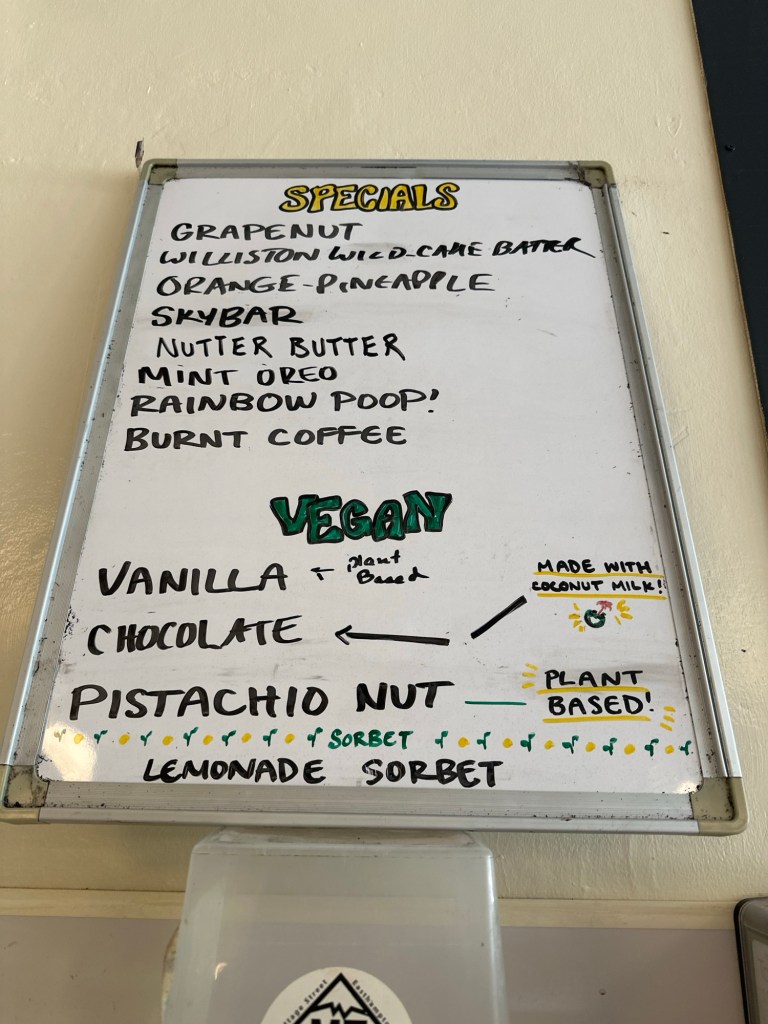 SPECIALS
GRAPENUT
WILLISTON WILD-CAKE BATTER
ORANGE-PINEAPPLE
SKYBAR
NUTTER BUTTER
MINT OREO
RAINBOW POOP!
BURNT COFFEE
VEGAN
VANILLA ← plant Based
MADE WITH COCONUT MILK!
CHOCOLATE
PISTACHIO NUT — PLANT BASED!
SORBET
LEMONADE SORBET